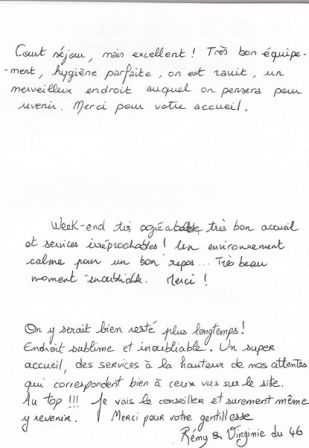 Court séjour, mais excellent ! Très bon équipe-
-ment, hygiène parfaite, on est ravit, un
merveilleux endroit auquel on pensera pour
revenir. Merci pour votre accueil.
Week-end très agréable, très bon accueil
et services irréprochables ! Un environnement
calme pour un bon repos... Très beau
moment inoubliable. Merci !
On y serait bien resté plus longtemps !
Endroit sublime et inoubliable. Un super
accueil, des services à la hauteur de nos attentes
qui correspondent bien à ceux vus sur le site.
Au top !!! Je vais le conseiller et surement même
y revenir. Merci pour votre gentillesse
Rémy & Virginie du 46